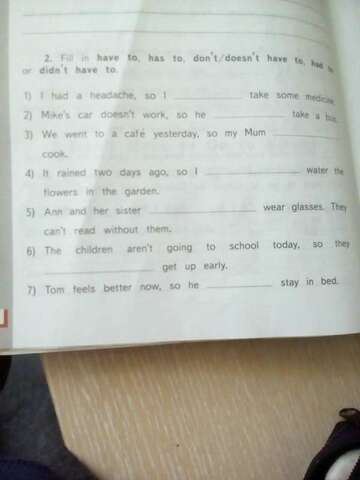 2. Fill in have to, has to, don't/doesn't have to, had to
or didn't have to.
1) I had a headache, so I ____________ take some medicine.
2) Mike's car doesn't work, so he ____________ take a bus.
3) We went to a café yesterday, so my Mum ____________
cook.
4) It rained two days ago, so I ____________ water the
flowers in the garden.
5) Ann and her sister ____________ wear glasses. They
can't read without them.
6) The children aren't going to school today, so they
____________ get up early.
7) Tom feels better now, so he ____________ stay in bed.